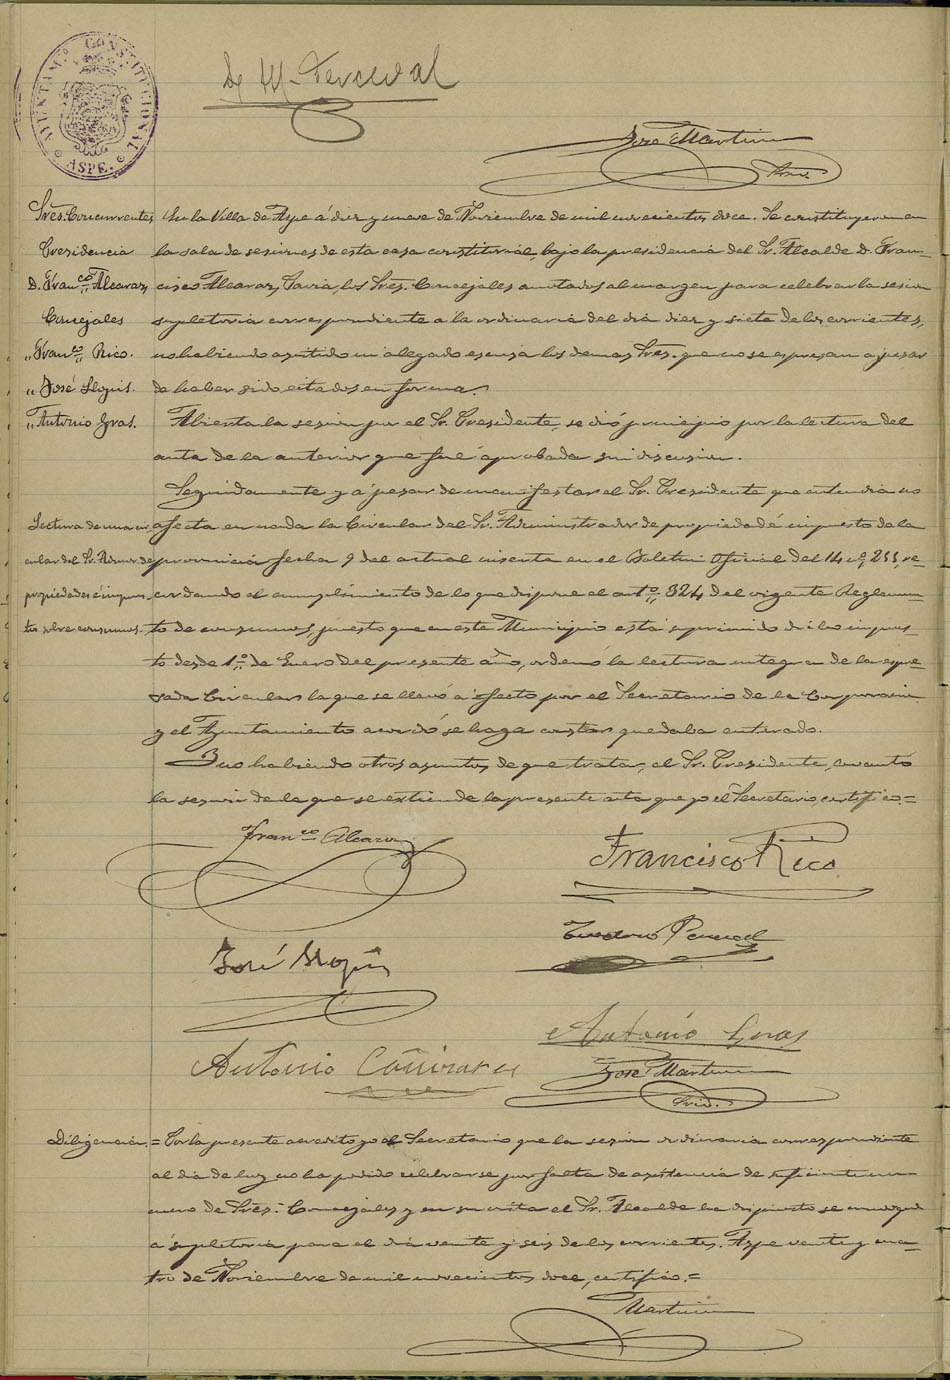 AYUNTAM.º CONSTITUCIONAL
ASPE.
José Martin
Srio.
Sres. Concurrentes
Presidencia
D. Fran.co Alcaraz
Concejales
" Fran.co Rico.
" José Llopis.
" Antonio Gras.
En la Villa de Aspe á diez y nueve de Noviembre de mil novecientos doce. Se constituyeron en
la sala de sesiones de esta casa consistorial, bajo la presidencia del Sr. Alcalde D. Fran-
cisco Alcaraz, los Sres. Concejales anotados al margen para celebrar la sesion
supletoria correspondiente á la ordinaria del dia diez y siete de los corrientes,
no habiendo asistido ni alegado escusa los demas Sres. que no se espresan a pesar
de haber sido citados en forma.
Abierta la sesion por el Sr. Presidente, se dió principio por la lectura del
acta de la anterior que fué aprobada sin discusion.
Lectura de una cir
cular del Sr. Admor. de
propiedades é impues
tos sobre consumos.
Seguidamente y á pesar de manifestar el Sr. Presidente que entendia no
afecta en nada la Circular del Sr. Administrador de propiedad é impuesto de la
provincia fecha 9 del actual inserta en el Boletin Oficial del 14 nº 255, re-
cordando el cumplimiento de lo que dispone el artº 324 del vigente Reglamen-
to de consumos, puesto que en este Municipio está suprimido dicho impues-
to desde 1.º de Enero del presente año, ordenó la lectura integra de la espre-
sada Circular la que se llevó a efecto por el Secretario de la Corporacion
y el Ayuntamiento acordó se haga constar quedaba enterado.
Y no habiendo otros asuntos de que tratar, el Sr. Presidente, levantó
la sesion de la que se extiende la presente acta que yo el Secretario, certifico.=
Fran.co Alcaraz
Francisco Rico
José Llopis
Antonio Gras
Antonio Cañizares
José Martin
Srio.
Diligencia.= Por la presente acredito yo el Secretario que la sesion ordinaria correspondiente
al dia de hoy no ha podido celebrarse por falta de asistencia de suficiente nu-
mero de Sres. Concejales y en su vista el Sr. Alcalde ha dispuesto se convoque
á supletoria para el dia veinte y seis de los corrientes. Aspe veinte y cua-
tro de Noviembre de mil novecientos doce, certifico.=
Martin